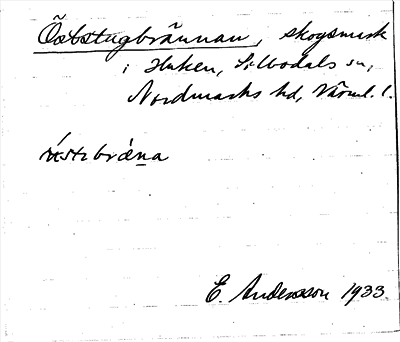 Öststugbrännan, skogsmark
i Huken, Silbodals sn,
Nordmarks hd, Värml. l.
E. Andersson 1933